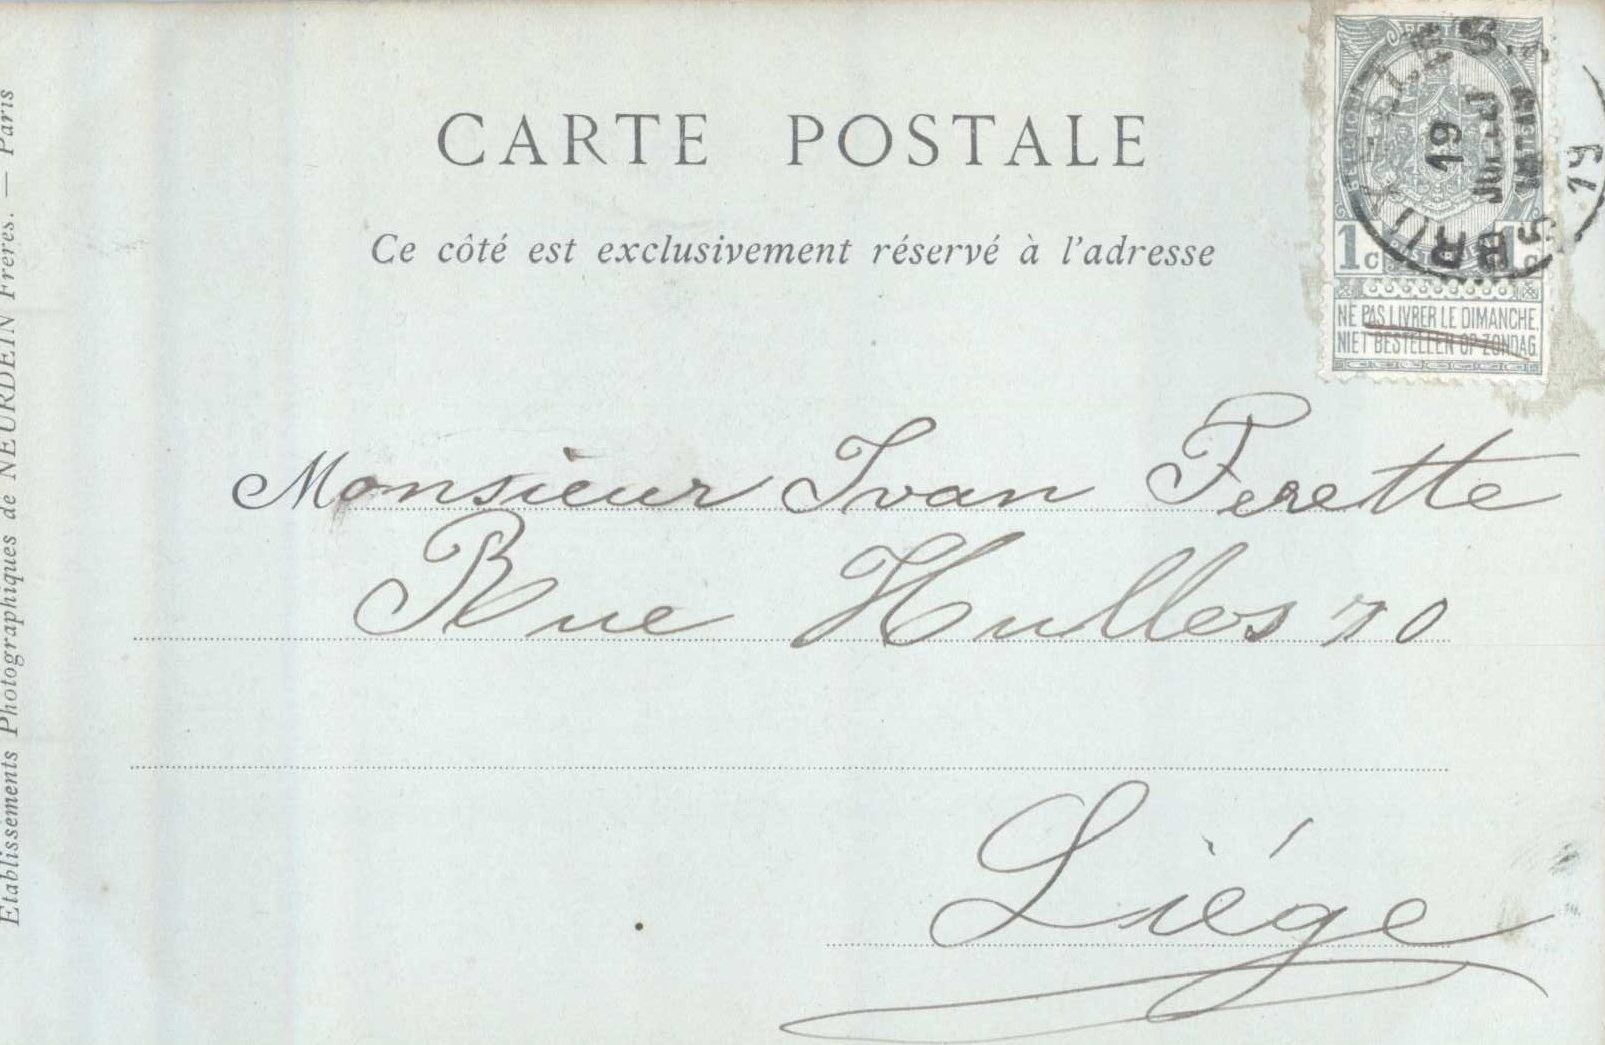 CARTE POSTALE
Ce côté est exclusivement réservé à l'adresse
BELGIQUE
1c 1c
NE PAS LIVRER LE DIMANCHE,
NIET BESTELLEN OP ZONDAG
BRUXELLES
19
JUIL
MATIN
5
19
Monsieur Ivan Ferette
Rue Hullos 70
Liége
Etablissements Photographiques de NEURDEIN Frères. — Paris